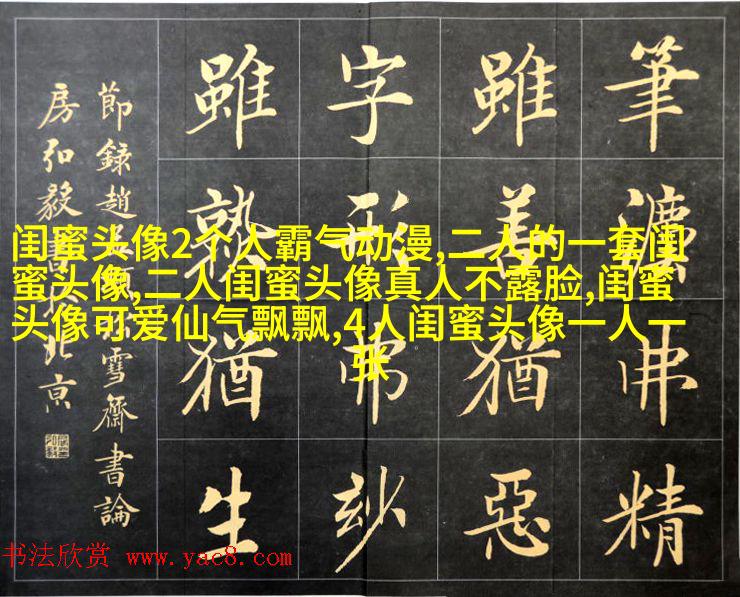 筆灋弗精
雖善猶惡
字形弗妙
雖熟猶生
節錄趙雪齋書論
房弘毅書於北京
闺蜜头像2个人霸气动漫,二人的一套闺
蜜头像,二人闺蜜头像真人不露脸,闺蜜
头像可爱仙气飘飘,4人闺蜜头像一人一
张
书法欣赏 www.yac8.com